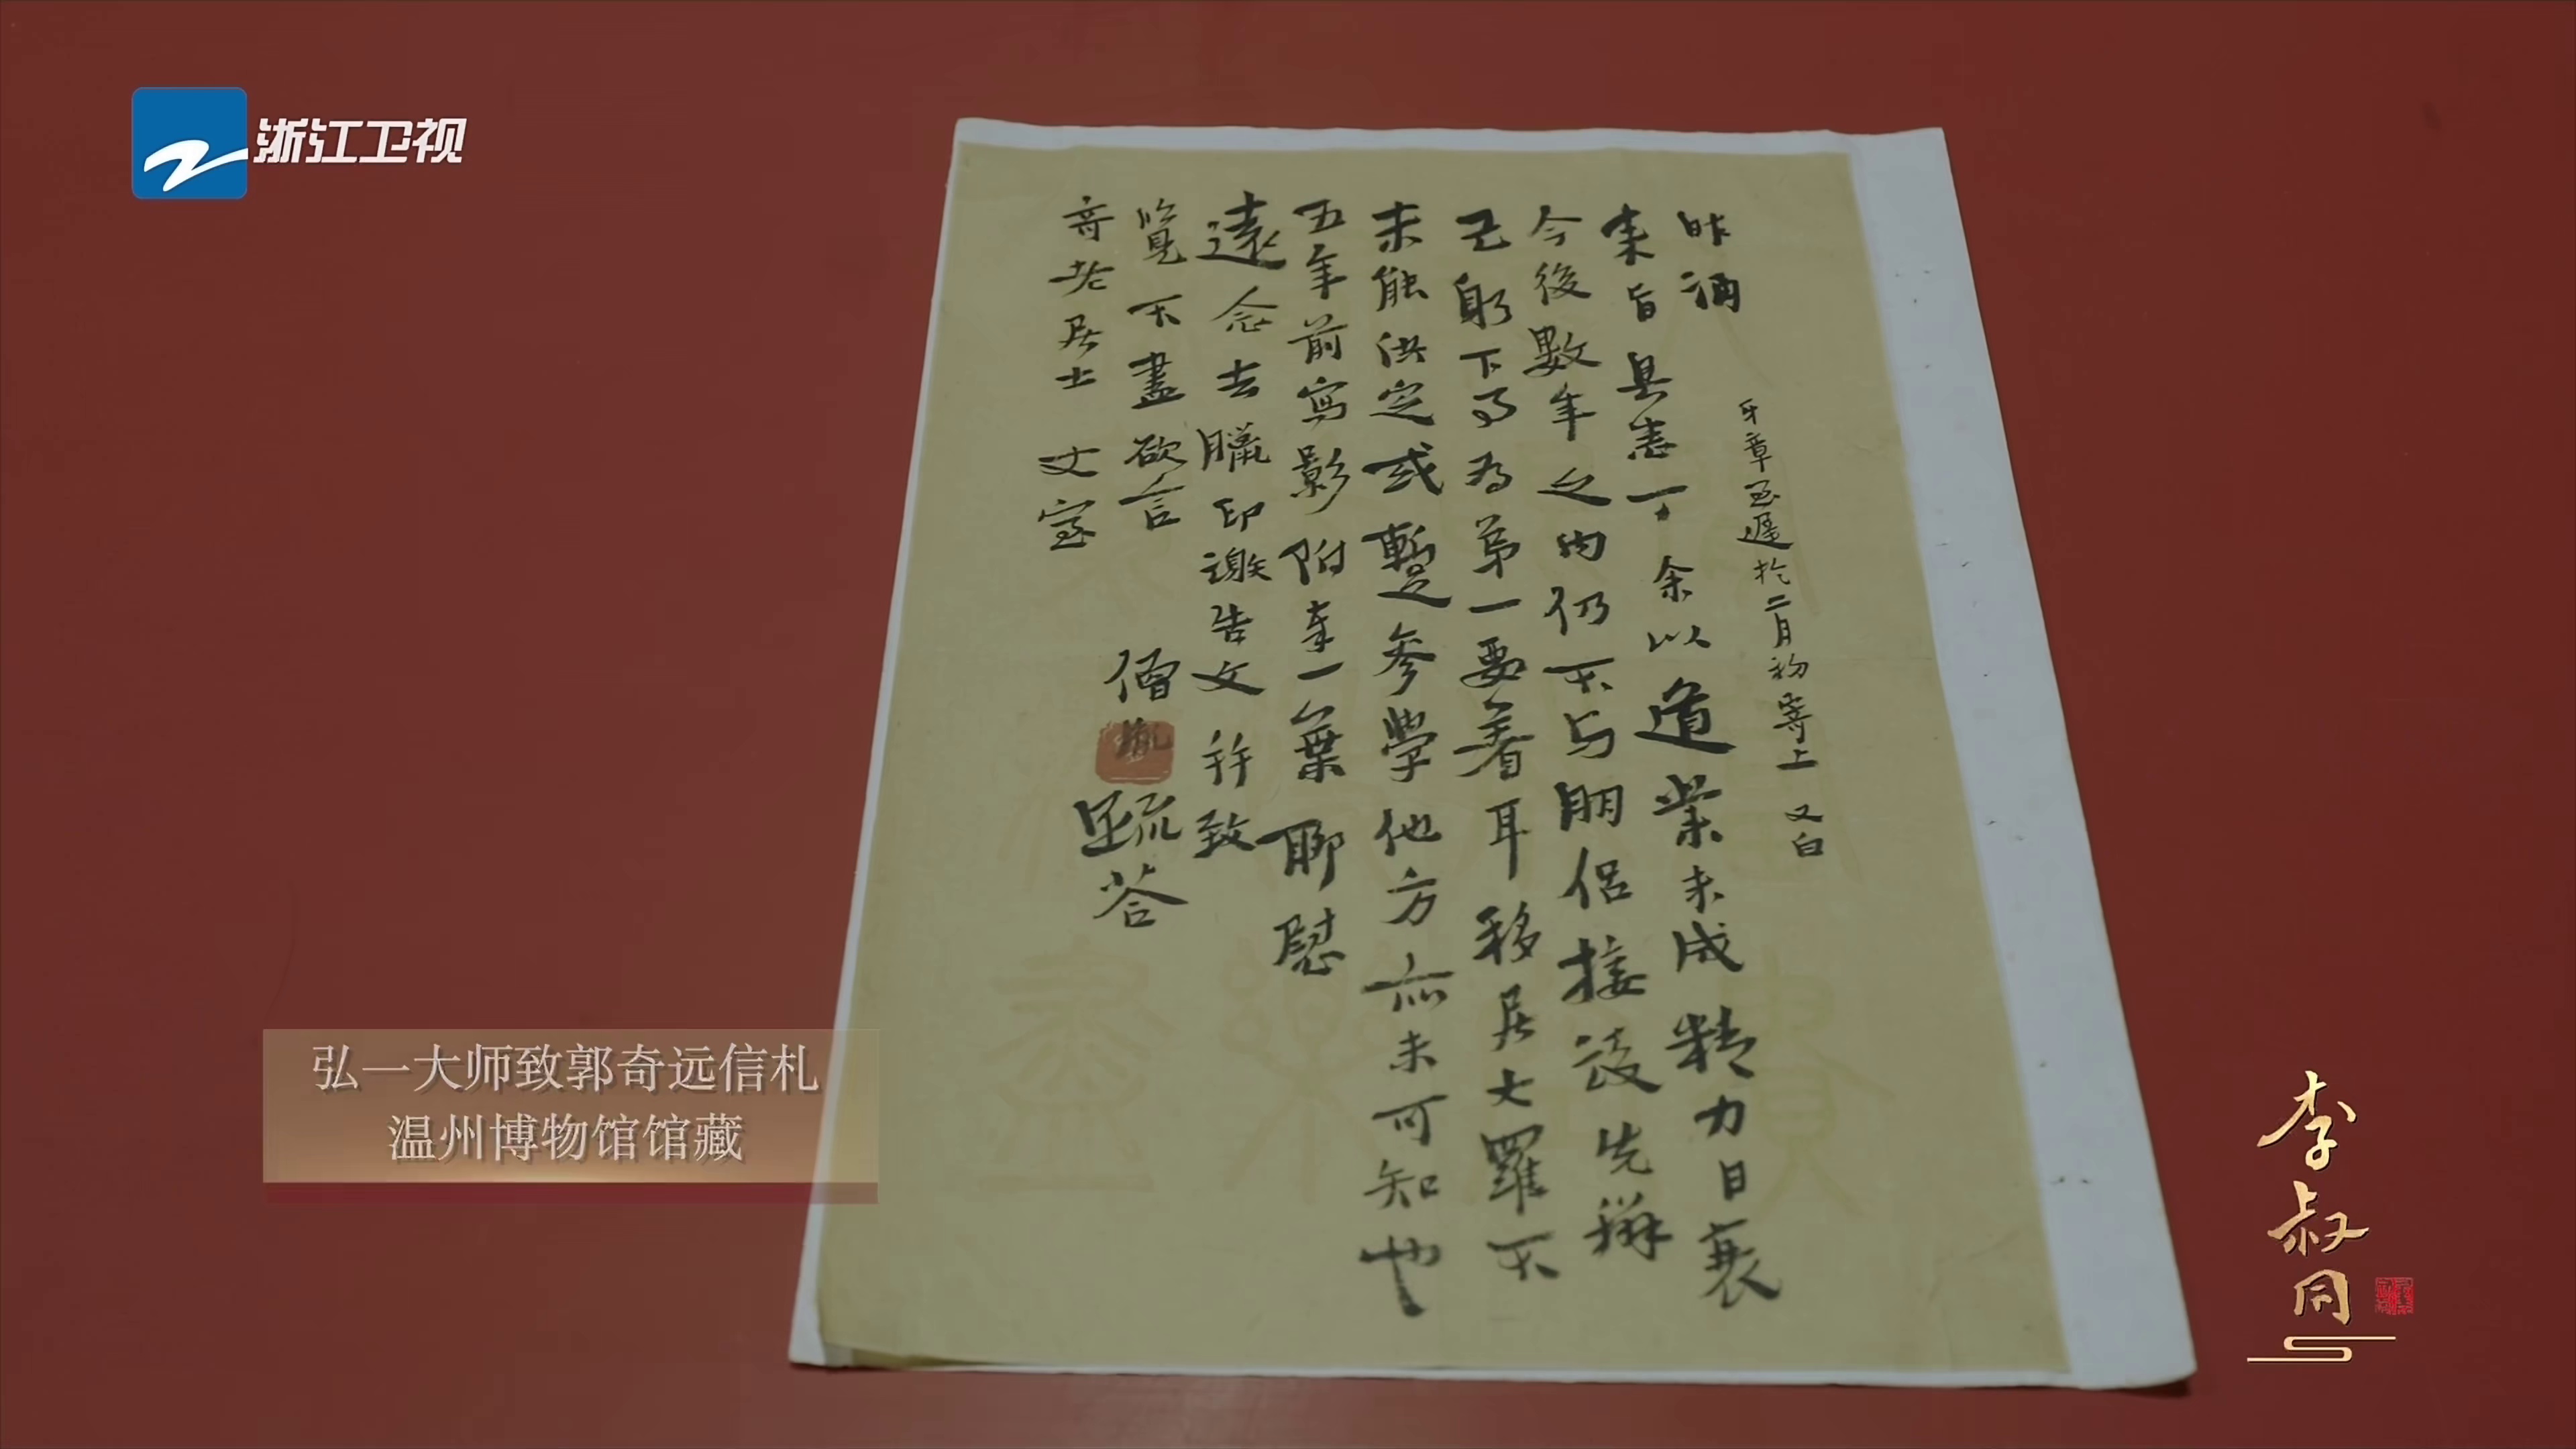 浙江卫视
牙章至遲於二月初寄上 又白
昨誦
來旨具悉一一余以道業未成精力日衰
今後數年之内仍不与朋侣接談先辦
己躬下事為第一要着耳移居大羅不
未能決定或暫參學他方亦未可知也
五年前寫影附奉一葉聊慰
遠念去臘印謝告文并致
覽不盡欲言
奇老居士 丈室
僧胤疏答
弘一大师致郭奇远信札
温州博物馆馆藏
李叔同